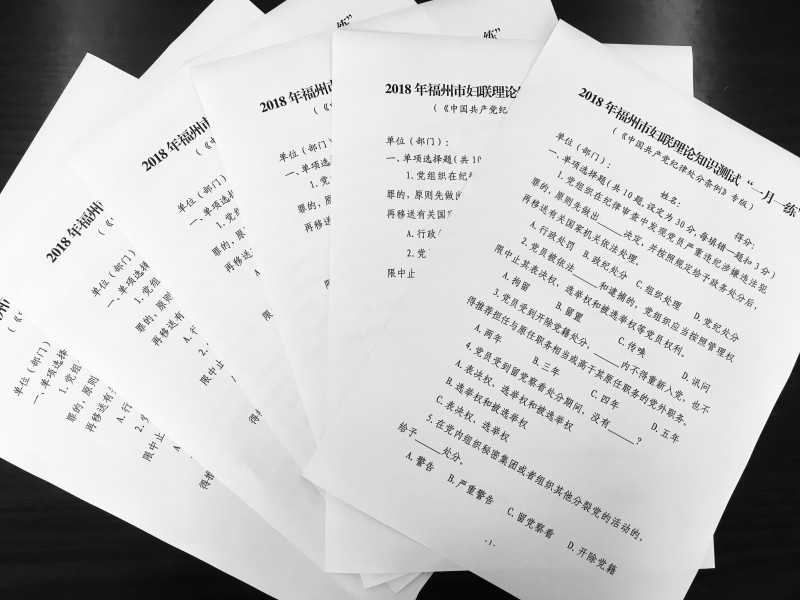 2018 年福州市妇联理论知识测试“一月一练”
（《中国共产党纪律处分条例》专版）
单位（部门）： 姓名： 得分：
一、单项选择题（共 10 题，设定为 30 分，每填错一题扣 3 分）
1. 党组织在纪律审查中发现党员严重违纪涉嫌违法犯
罪的，原则先做出____决定，并按照规定给予政务处分后，
再移送有关国家机关依法处理。
A. 行政处罚 B. 政纪处分 C. 组织处理 D. 党纪处分
2. 党员被依法____和逮捕的，党组织应当按照管理权
限中止其表决权、选举权和被选举权等党员权利。
A. 拘留 B. 留置 C. 传唤 D. 讯问
3. 党员受到开除党籍处分，____内不得重新入党，也不
得推荐担任与原任职务相当或高于其原任职务的党外职务。
A. 两年 B. 三年 C. 四年 D. 五年
4. 党员受到留党察看处分期间，没有____？
A. 表决权、选举权和被选举权
B. 选举权和被选举权
C. 表决权、选举权
5. 在党内组织秘密集团或者组织其他分裂党的活动的，
给予____处分。
A. 警告 B. 严重警告 C. 留党察看 D. 开除党籍
- 1 -
练”
2018 年福州市妇联理论知
（《中国共产党纪
单位（部门）：
一、单项选择题（共 10
1. 党组织在纪
罪的，原则先做出
再移送有关国
A. 行政
2. 党
限中止
练”
2018 年福州市妇
（《
单位（部门）
一、单项选择题
1. 党组
罪的，
再移送
A
2.
限中止
2018 年福州市
（《
单位（部门）
一、单项选
1. 党组
罪的，原则
再移送有
A. 行
2.
限中止
得推
2018 年福州
（《
单位（部门）
一、单项选择
1. 党组
罪的，原则
再移送有
A. 行
2. 党
限中止
A
得推
（《
单位（
一、单项选择
1. 党组
罪的，原则
再移送有
A. 行
2. 党
限中止
A
得推